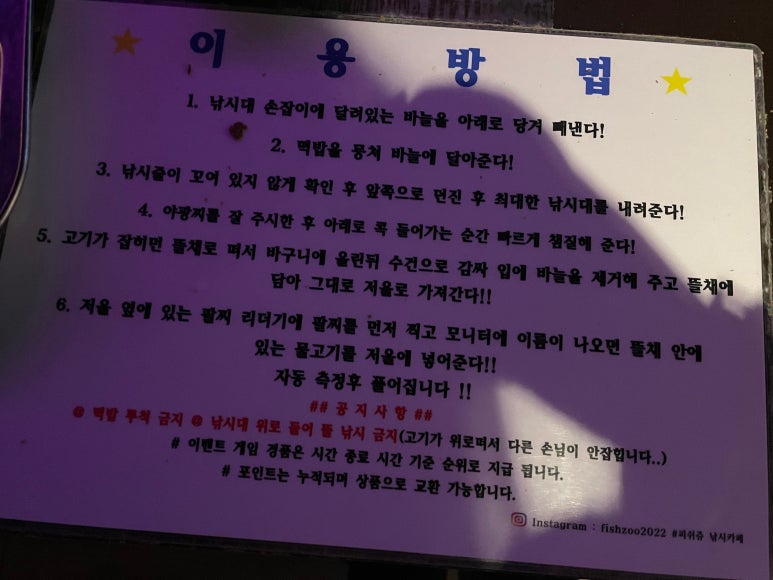 이 용 방 법
1. 낚시대 손잡이에 달려있는 바늘을 아래로 당겨 빼낸다!
2. 떡밥을 뭉쳐 바늘에 달아준다!
3. 낚시줄이 꼬여 있지 않게 확인 후 앞쪽으로 던진 후 최대한 낚시대를 내려준다!
4. 야광찌를 잘 주시한 후 아래로 쏙 들어가는 순간 빠르게 챔질해 준다!
5. 고기가 잡히면 뜰채로 떠서 바구니에 올린뒤 수건으로 감싸 입에 바늘을 제거해 주고 뜰채에
담아 그대로 저울로 가져간다!!
6. 저울 옆에 있는 팔찌 리더기에 팔찌를 먼저 찍고 모니터에 이름이 나오면 뜰채 안에
있는 물고기를 저울에 넣어준다!!
자동 측정후 풀어집니다 !!
## 공 지 사 항 ##
@ 떡밥 투척 금지 @ 낚시대 위로 들어 뜰 낚시 금지(고기가 위로떠서 다른 손님이 안잡힙니다..)
# 이벤트 게임 경품은 시간 종료 시간 기준 순위로 지급 됩니다.
# 포인트는 누적되며 상품으로 교환 가능합니다.
Instagram : fishzoo2022 #피쉬쥬 낚시카페